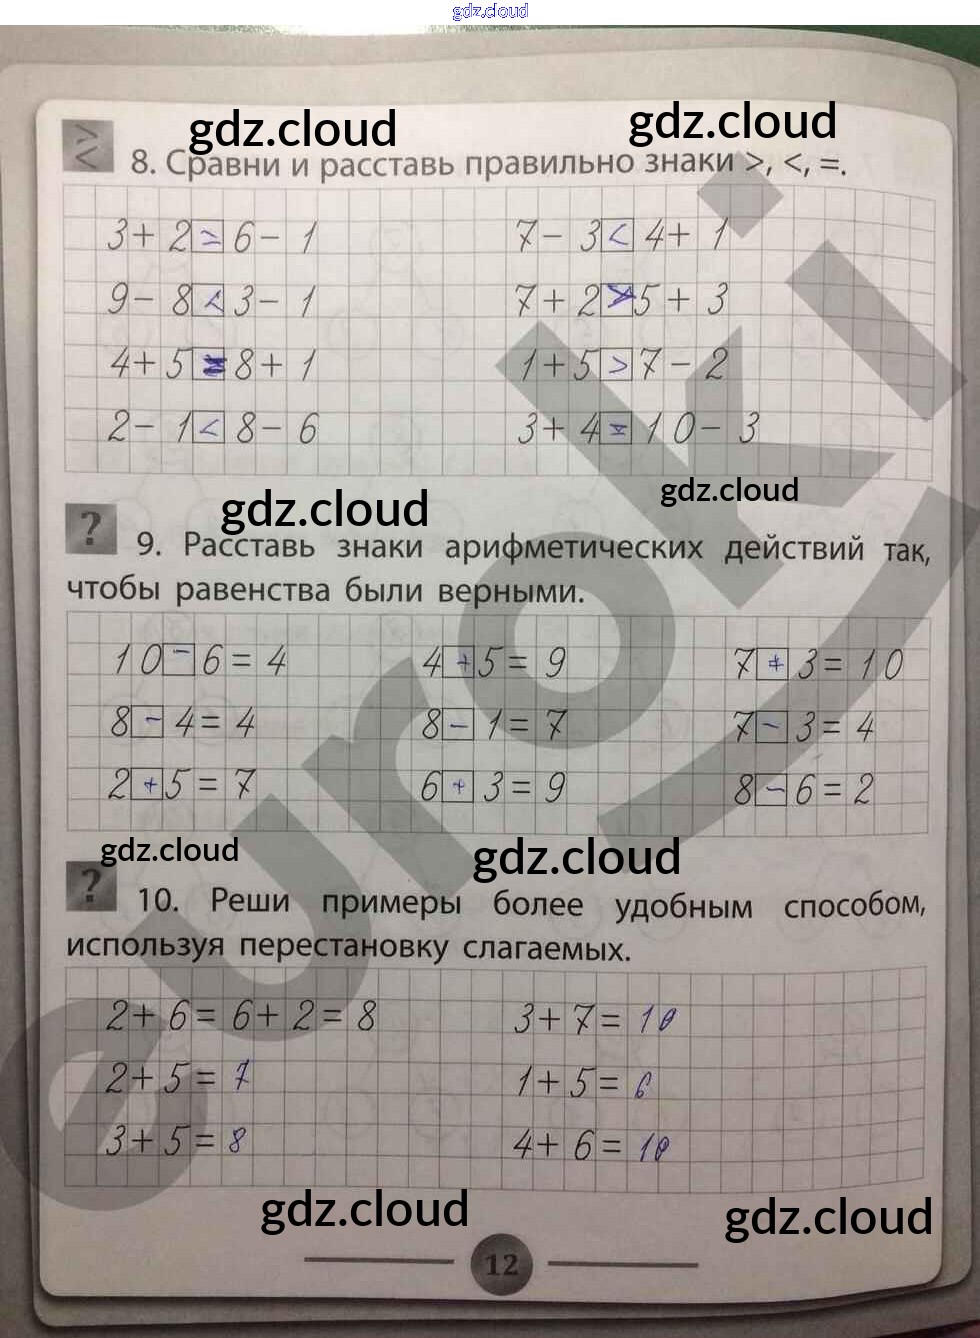 gdz.cloud
gdz.cloud gdz.cloud
8. Сравни и расставь правильно знаки >, <, =.
3 + 2 = 6 - 1 7 - 3 < 4 + 1
9 - 8 < 3 - 1 7 + 2 > 5 + 3
4 + 5 = 8 + 1 1 + 5 > 7 - 2
2 - 1 < 8 - 6 3 + 4 = 10 - 3
gdz.cloud gdz.cloud
? 9. Расставь знаки арифметических действий так,
чтобы равенства были верными.
10 - 6 = 4 4 + 5 = 9 7 + 3 = 10
8 - 4 = 4 8 - 1 = 7 7 - 3 = 4
2 + 5 = 7 6 + 3 = 9 8 - 6 = 2
gdz.cloud gdz.cloud
? 10. Реши примеры более удобным способом,
используя перестановку слагаемых.
2 + 6 = 6 + 2 = 8 3 + 7 = 10
2 + 5 = 7 1 + 5 = 6
3 + 5 = 8 4 + 6 = 10
gdz.cloud gdz.cloud
12
euroki